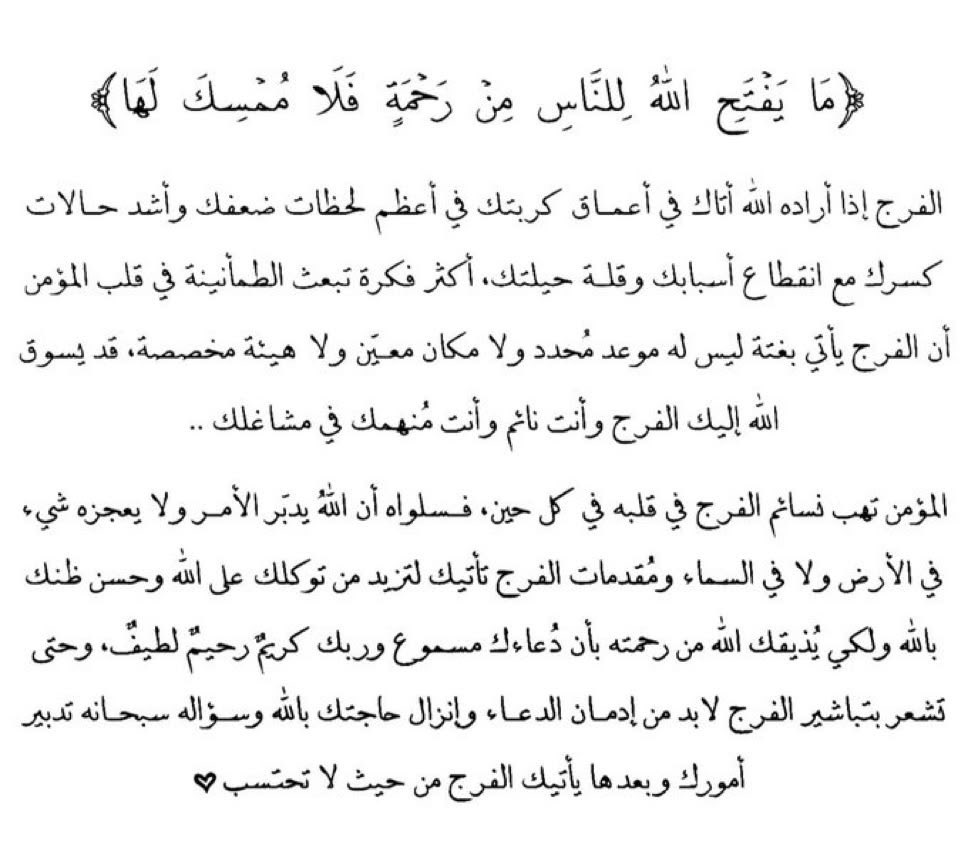 ﴿مَا يَفْتَحِ اللهُ لِلنَّاسِ مِنْ رَحْمَةٍ فَلَا مُمْسِكَ لَهَا﴾
الفرج إذا أراده الله أتاك في أعماق كربتك في أعظم لحظات ضعفك وأشد حالات
كسرك مع انقطاع أسبابك وقلة حيلتك، أكثر فكرة تبعث الطمأنينة في قلب المؤمن
أن الفرج يأتي بغتة ليس له موعد مُحدد ولا مكان معيّن ولا هيئة مخصصة، قد يسوق
الله إليك الفرج وأنت نائم وأنت مُنهمك في مشاغلك ..
المؤمن تهب نسائم الفرج في قلبه في كل حين، فسلواه أن اللهُ يدبّر الأمر ولا يعجزه شيء
في الأرض ولا في السماء ومُقدمات الفرج تأتيك لتزيد من توكلك على الله وحسن ظنك
بالله ولكي يُذيقك الله من رحمته بأن دُعاءك مسموع وربك كريمٌ رحيمٌ لطيفٌ، وحتى
تشعر بتباشير الفرج لابد من إدمان الدعاء وإنزال حاجتك بالله وسؤاله سبحانه تدبير
أمورك وبعدها يأتيك الفرج من حيث لا تحتسب♥